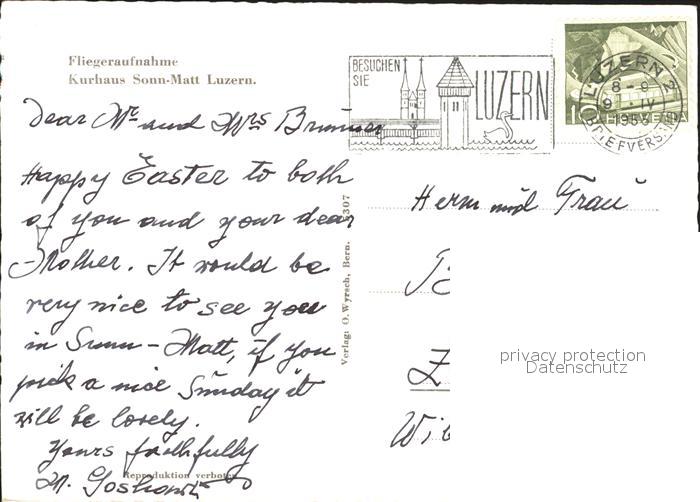 Fliegeraufnahme
Kurhaus Sonn-Matt Luzern.
BESUCHEN
SIE
LUZERN
LUZERN 2
8-9
9.IV
1953
BRIEFVERS
10 HELVETIA
Dear Mr and Mrs Brunner
Happy Easter to both
of you and your dear
Mother. It would be
very nice to see you
in Sunn-Matt, if you
pick a nice Sunday it
will be lovely.
Yours faithfully
Reproduktion verboten
Verlag: O. Wyrsch, Bern. 307
Herrn und Frau
privacy protection
Datenschutz